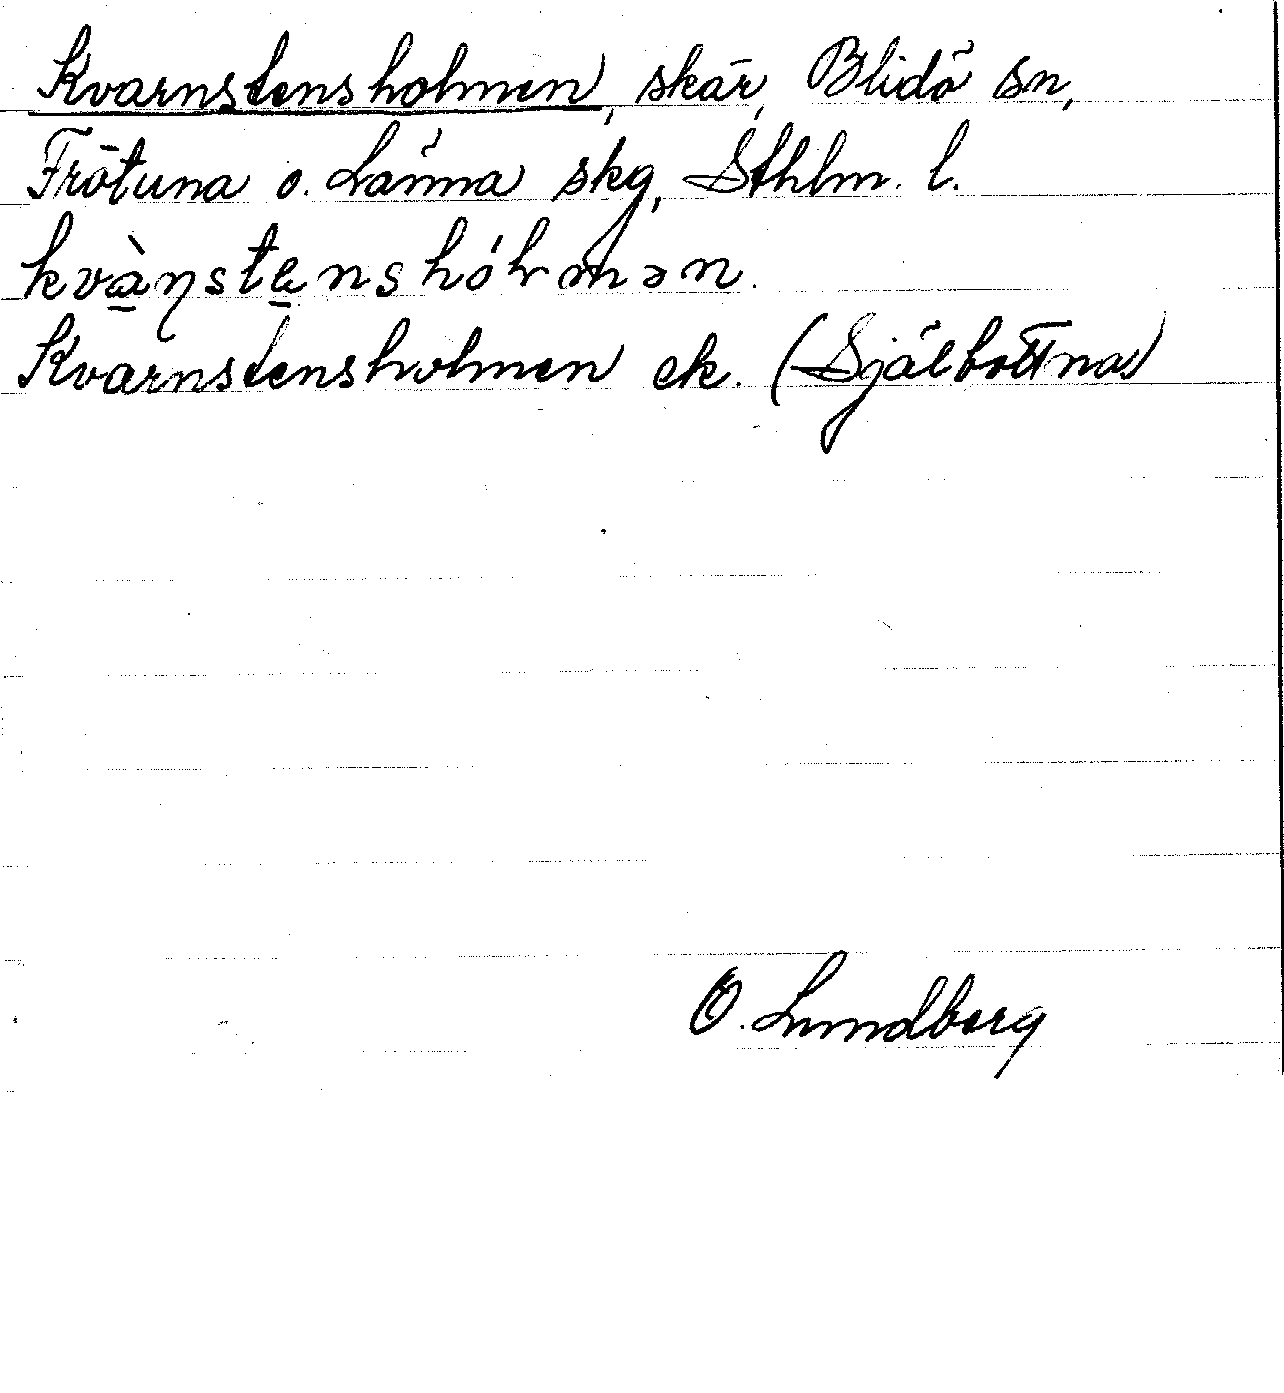 Kvarnstensholmen, skär, Blidö sn,
Frötuna o. Länna skg, Sthlm. l.
kvàṇste̱nshólmən.
Kvarnstensholmen ek. (Själbottna)
O. Lundberg